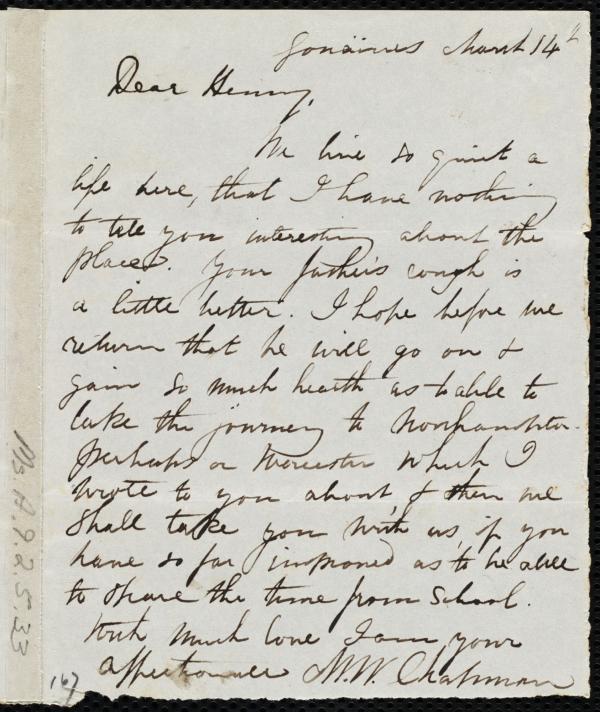 Gonaives March 14th
Dear Henny,
We live so quiet a
life here, that I have nothing
to tell you interesting about the
place. Your father's cough is
a little better. I hope before we
return that he will go on &
gain so much health as to be able to
take the journey to Northampton
perhaps or Worcester which I
wrote to you about & then we
shall take you with us, if you
have so far improved as to be able
to spare the time from School.
With much love I am your
affectionate M. W. Chapman
167
Ms.A.9.2.5.33